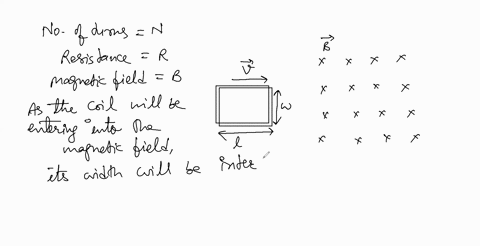 No. of drons = N
Resistance = R
magnetic field = B
As the coil will be
entering into the
magnetic field,
its width will be inter
V
w
l
B
x x x x
x x x x
x x x x
x x x x